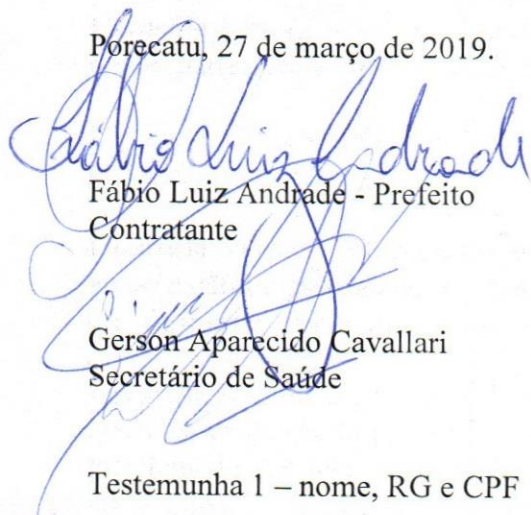 Porecatu, 27 de março de 2019.
Fábio Luiz Andrade
Fábio Luiz Andrade - Prefeito
Contratante
Gerson Aparecido Cavallari
Secretário de Saúde
Testemunha 1 – nome, RG e CPF